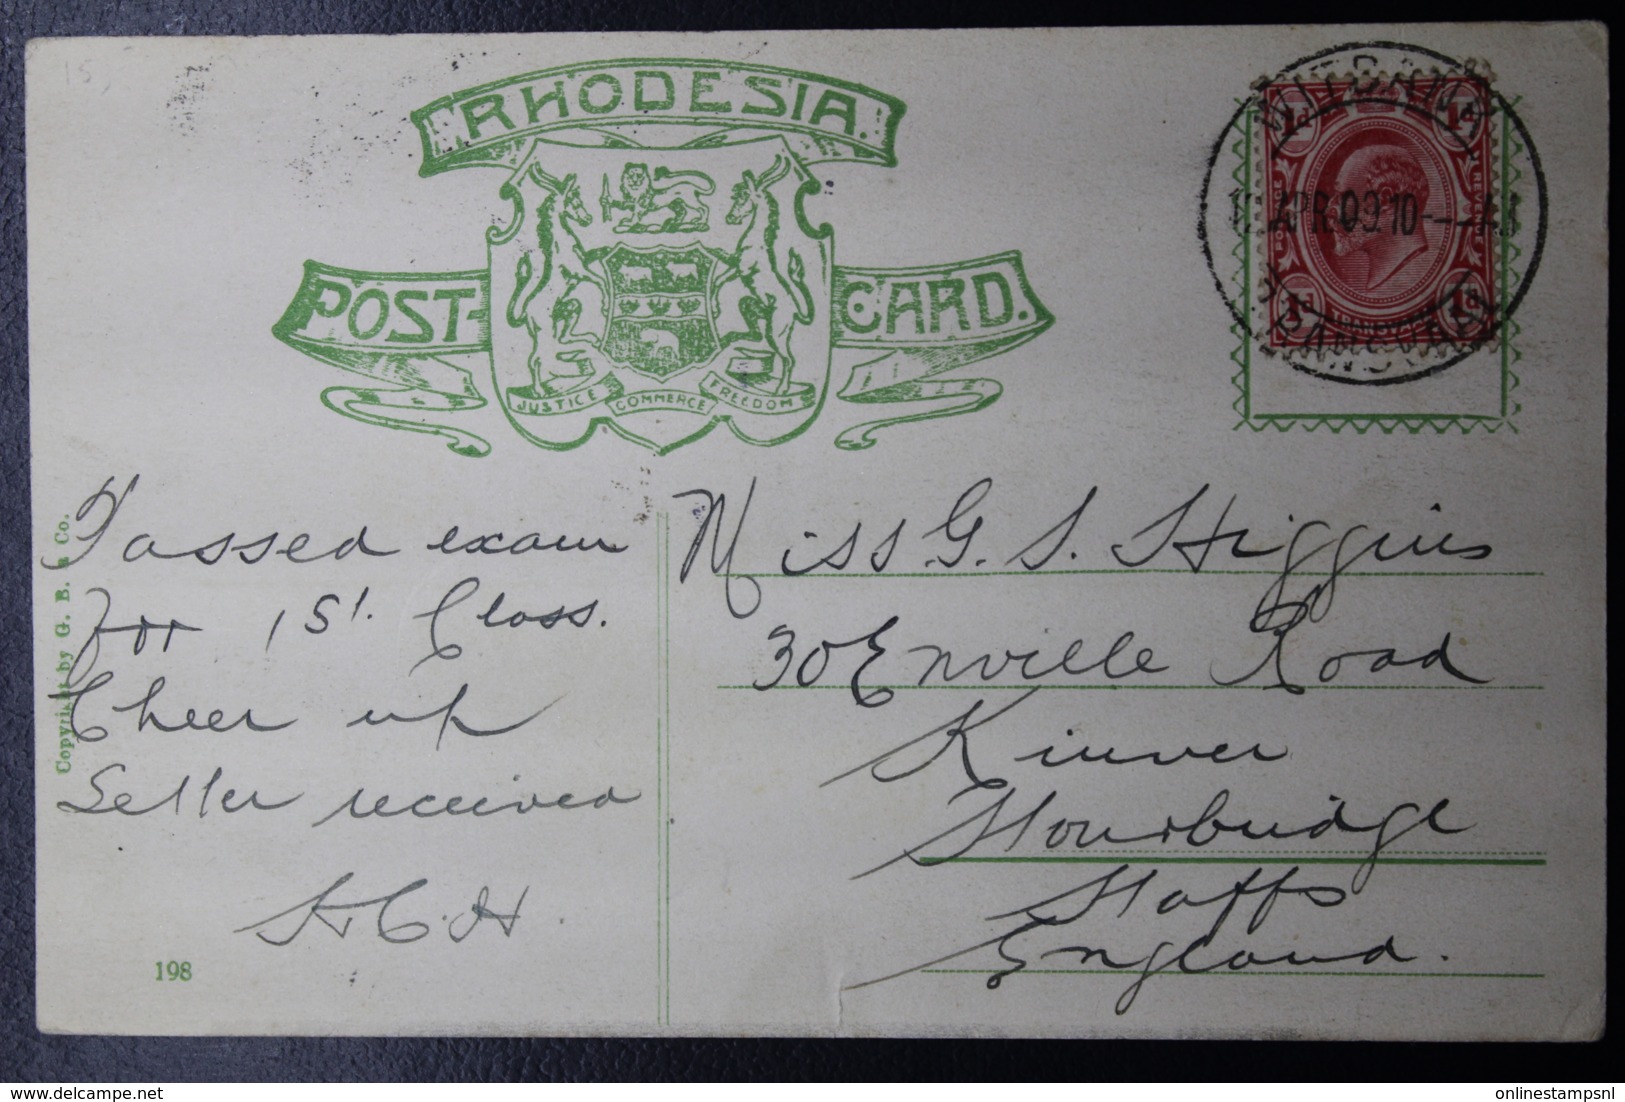 15
RHODESIA.
POST CARD.
JUSTICE COMMERCE FREEDOM
WITBANK
APR 09.10
TRANSVAAL
POSTAGE
REVENUE
1d 1d
1d 1d
TRANSVAAL
Passed exam
for 1st. Class.
Cheer up
Letter received
H.C.H.
Miss G. S. Higgins
30 Enville Road
Kinver
Stourbridge
Staffs
England.
Copyright by G. B. & Co.
198
onlinestampsnl